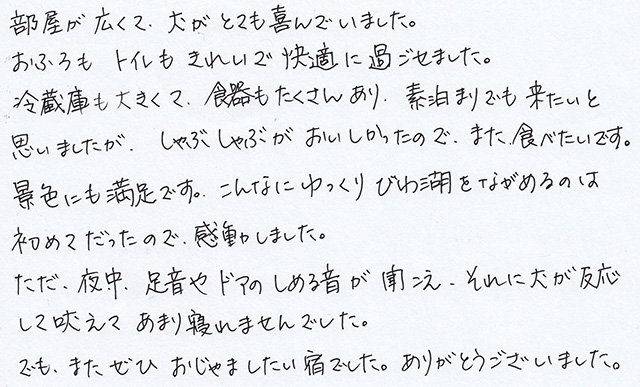 部屋が広くて、犬がとても喜んでいました。
おふろも トイレも きれいで 快適に過ごせました。
冷蔵庫も大きくて、食器もたくさんあり、素泊まりでも来たいと
思いましたが、しゃぶしゃぶが おいしかったので、また、食べたいです。
景色にも満足です。こんなにゆっくり びわ湖をながめるのは
初めてだったので、感動しました。
ただ、夜中、足音や ドアのしめる音が 聞こえ、それに犬が反応
して吠えて あまり寝れませんでした。
でも、また ぜひ おじゃましたい宿でした。ありがとうございました。